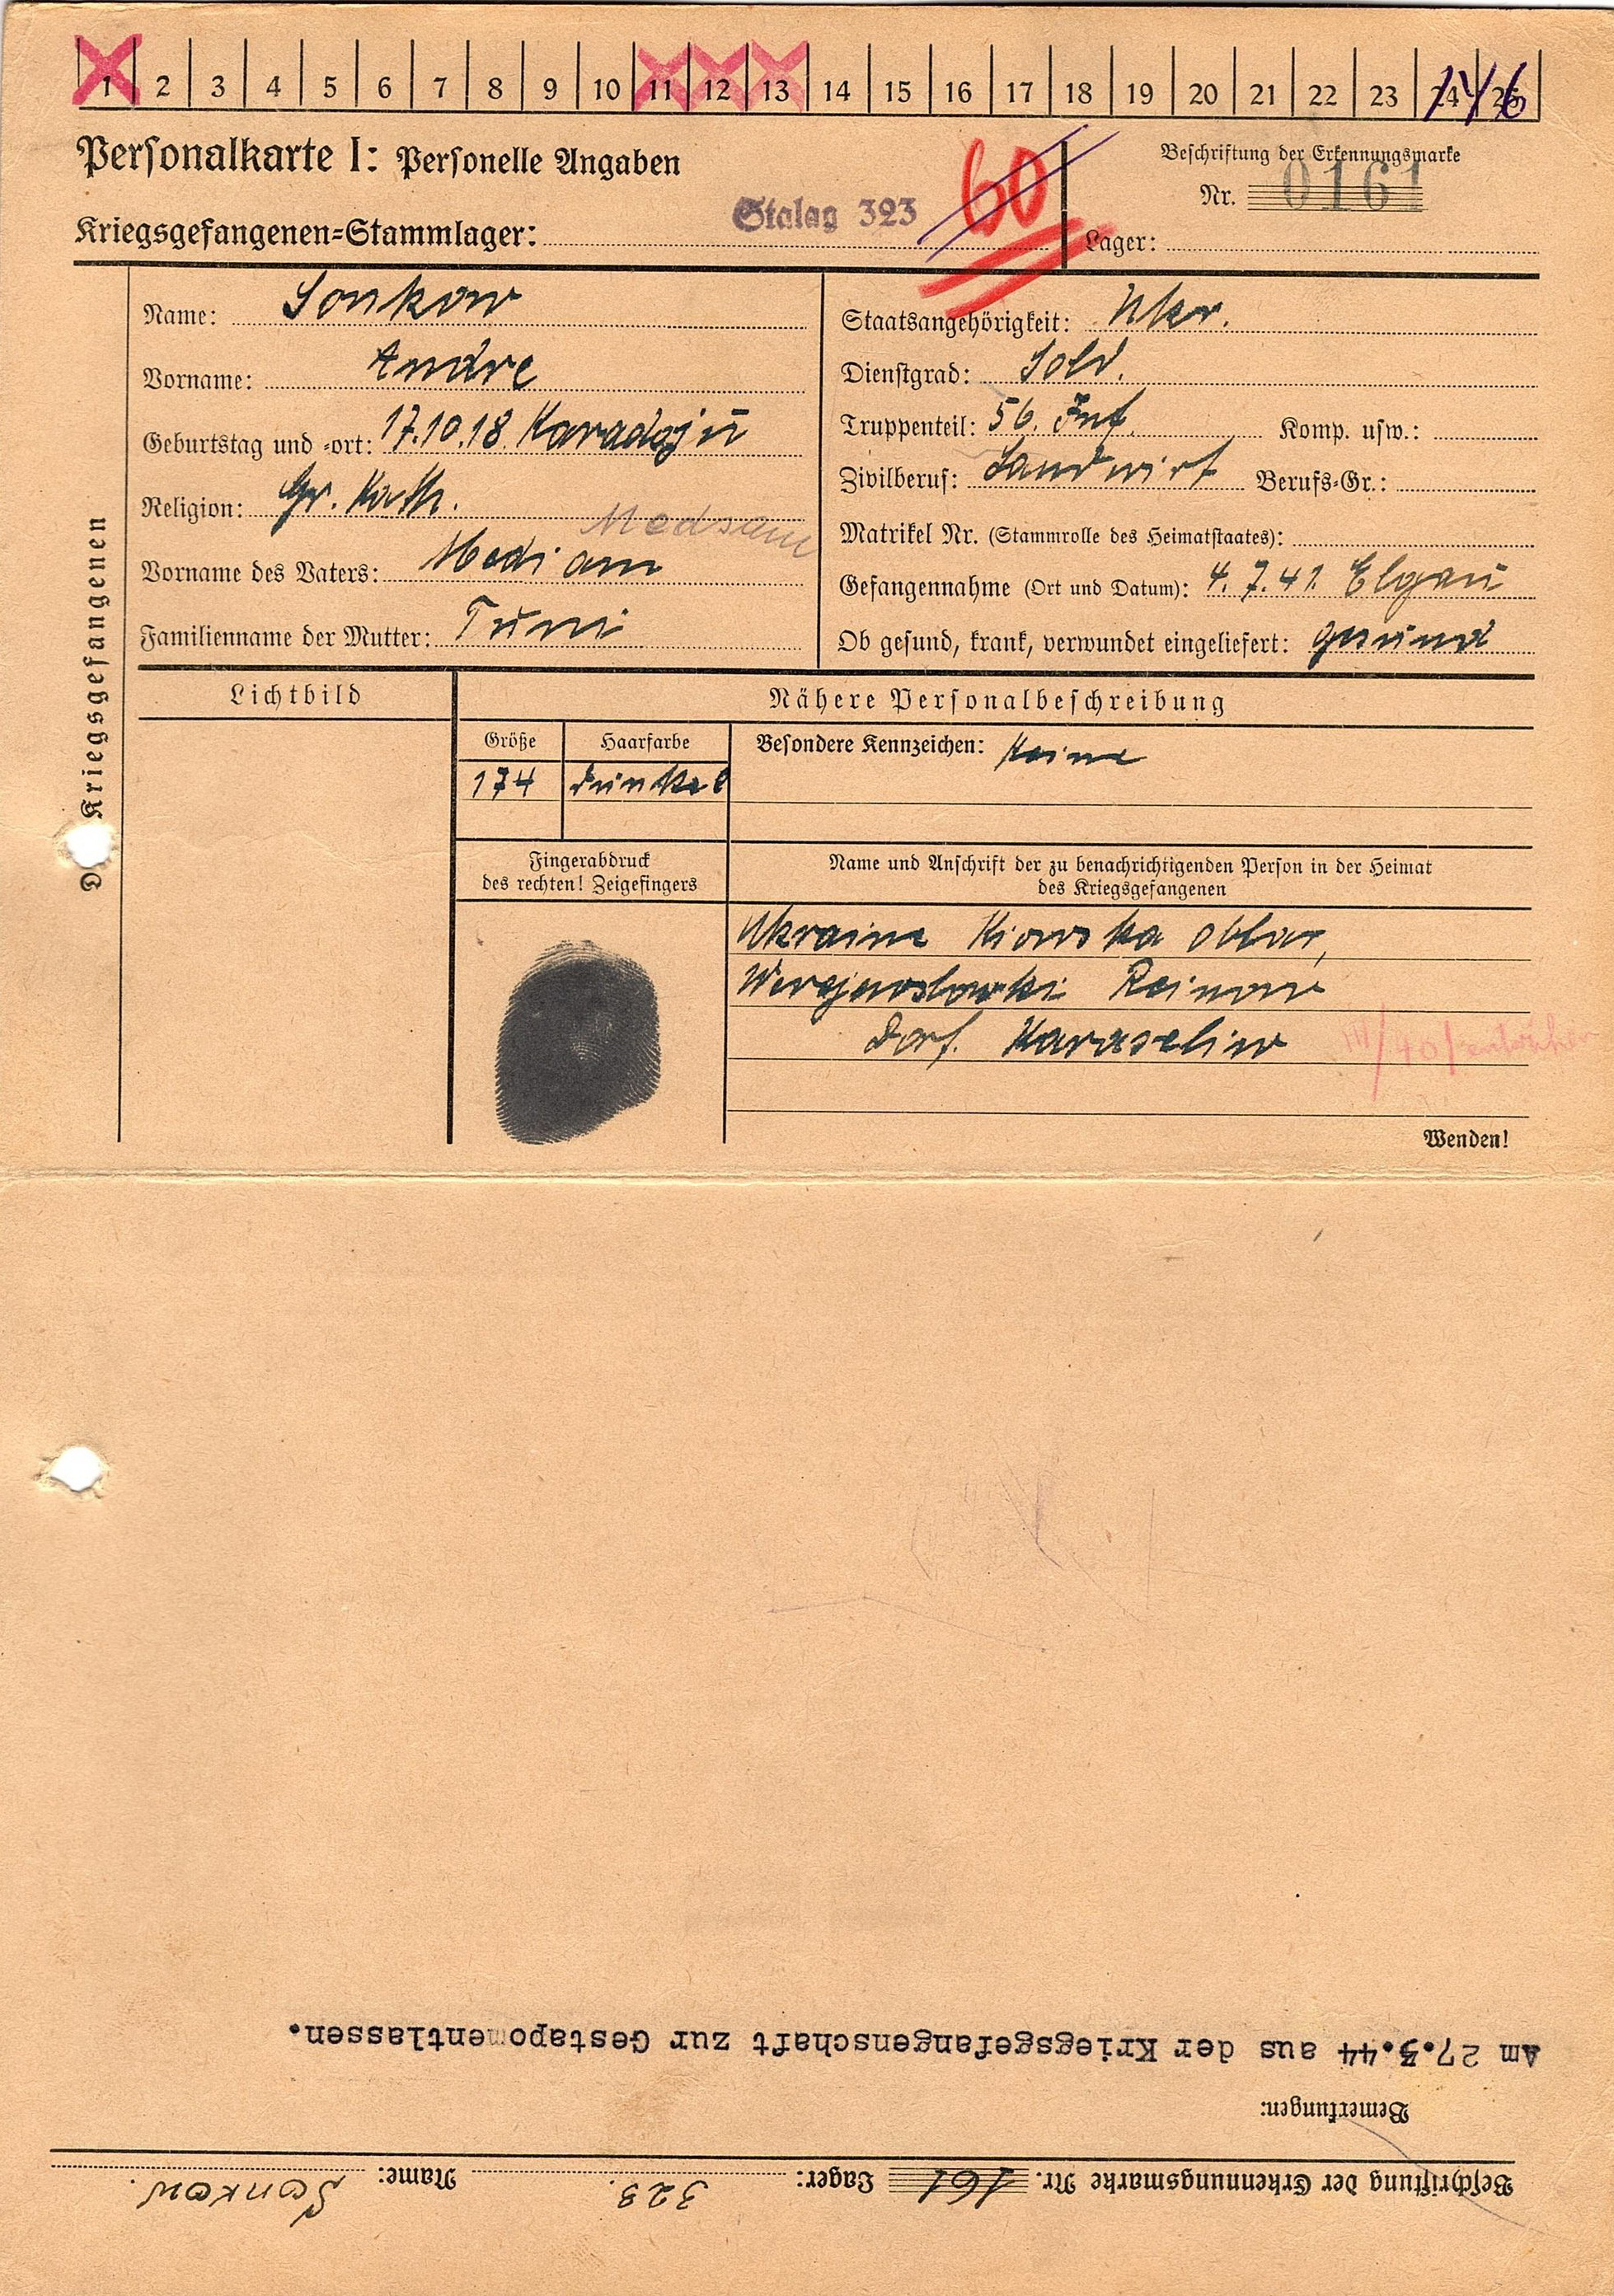 1 2 3 4 5 6 7 8 9 10 11 12 13 14 15 16 17 18 19 20 21 22 23 24 25
14/6
Personalkarte I: Personelle Angaben
60
Beschriftung der Erkennungsmarke
Nr. 0161
Kriegsgefangenen=Stammlager: Stalag 323
Lager:
Des Kriegsgefangenen
Name: Sonkow
Vorname: Andre
Geburtstag und =ort: 17.10.18.
Religion: Gr. Kath.
Medsam
Vorname des Vaters: Mediam
Familienname der Mutter: Tuni
Staatsangehörigkeit: Ukr.
Dienstgrad: Sold.
Truppenteil: 56. Inf. Komp. usw.:
Zivilberuf: Landwirt Berufs=Gr.:
Matrikel Nr. (Stammrolle des Heimatstaates):
Gefangennahme (Ort und Datum): 4.7.41. Elgau
Ob gesund, krank, verwundet eingeliefert: gesund
Lichtbild
Nähere Personalbeschreibung
Größe
174
Haarfarbe
dunkel
Besondere Kennzeichen: Keine
Fingerabdruck
des rechten! Zeigefingers
Name und Anschrift der zu benachrichtigenden Person in der Heimat
des Kriegsgefangenen
Ukraine Kiowska
Dorf.
Wenden!
Beschriftung der Erkennungsmarke Nr. 161 Lager: 323. Name: Sonkow.
Bemerkungen:
Am 27.3.44 aus der Kriegsgefangenschaft zur Gestapo entlassen.